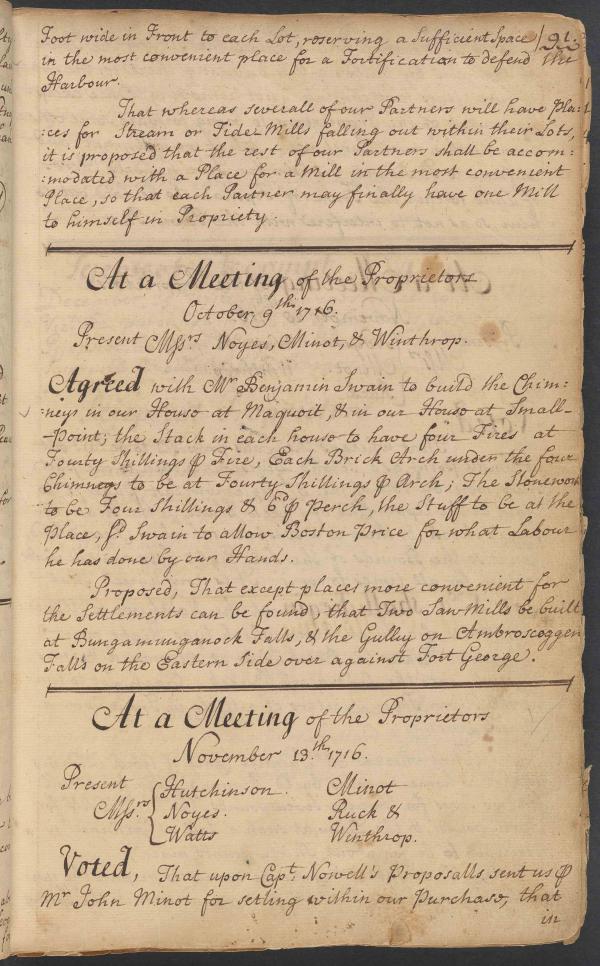 91.
Foot wide in Front to each Lot, reserving a Sufficient Space
in the most convenient place for a Fortification to defend the
Harbour.
That whereas severall of our Partners will have Pla:
:ces for Stream or Tide-Mills falling out within their Lots,
it is proposed that the rest of our Partners shall be accom:
:modated with a Place for a Mill in the most convenient
Place, so that each Partner may finally have one Mill
to himself in Propriety.
At a Meeting of the Proprietors
October 9th. 1716.
Present Mssrs Noyes, Minot, & Winthrop.
Agreed with Mr Benjamin Swain to build the Chim:
:neys in our House at Maquoit, & in our House at Small-
-Point; the Stack in each house to have four Fires at
Fourty Shillings ⅌ Fire, Each Brick Arch under the four
Chimneys to be at Fourty Shillings ⅌ Arch; The Stonework
to be Four Shillings & 6d ⅌ Perch, the Stuff to be at the
Place, sd. Swain to allow Boston Price for what Labour
he has done by our Hands.
Proposed, That except places more convenient for
the Settlements can be found, that Two Saw Mills be built
at Bungamunganock Falls, & the Gulley on Ambroscoggen
Falls on the Eastern Side over against Fort George.
At a Meeting of the Proprietors
November 13.th 1716.
Present
Mssrs. Hutchinson. Minot
Noyes. Ruck &
Watts Winthrop.
Voted, That upon Capt. Nowell's Proposalls sent us ⅌
Mr John Minot for setling within our Purchase, that
in